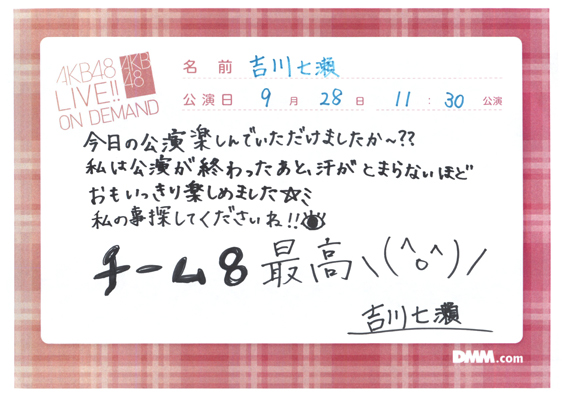 AKB48
LIVE!!
ON DEMAND
AKB
48
名前 吉川七瀬
公演日 9月28日 11:30公演
今日の公演楽しんでいただけましたか〜??
私は公演が終わったあと、汗がとまらないほど
おもいっきり楽しめました☆ミ
私の事探してくださいね!!
チーム8最高\(^o^)/
吉川七瀬
DMM.com